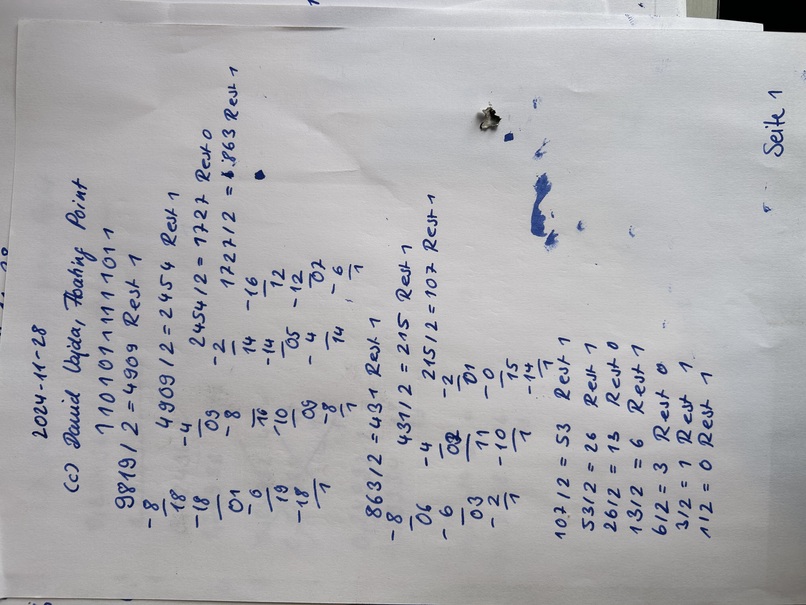 2024-11-28
(c) David Vajda, Floating Point
1101011111011
9819/2 = 4909 Rest 1
-8
18
-18
01
-0
19
-18
1
4909/2 = 2454 Rest 1
-4
09
-8
16
-10
09
-8
1
2454/2 = 1727 Rest 0
-2
14
-14
05
-4
14
1727/2 = 863 Rest 1
-16
12
-12
07
-6
1
863/2 = 431 Rest 1
-8
06
-6
03
-2
1
431/2 = 215 Rest 1
-4
02
11
-10
1
215/2 = 107 Rest 1
-2
01
-0
15
-14
1
107/2 = 53 Rest 1
53/2 = 26 Rest 1
26/2 = 13 Rest 0
13/2 = 6 Rest 1
6/2 = 3 Rest 0
3/2 = 1 Rest 1
1/2 = 0 Rest 1
Seite 1